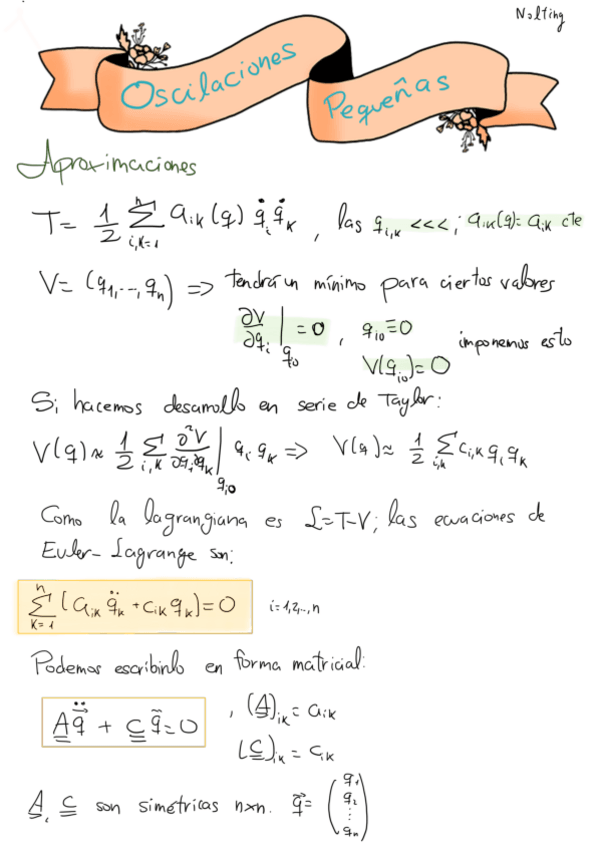 Nolting
Oscilaciones
Pequeñas
Aproximaciones
T = 1/2 Σ_{i,k=1}^{n} a_{ik}(q) q̇_i q̇_k , las q_{i,k} <<< ; a_{ik}(q) = a_{ik} cte
V = (q_1, ..., q_n) => tendrá un mínimo para ciertos valores
∂V/∂q_i |_{q_{i0}} = 0 , q_{i0} ≡ 0 imponemos esto
V(q_{i0}) = 0
Si hacemos desarrollo en serie de Taylor:
V(q) ≈ 1/2 Σ_{i,k} ∂²V/∂q_i∂q_k |_{q_{i0}} q_i q_k => V(q) ≈ 1/2 Σ_{i,k} c_{ik} q_i q_k
Como la lagrangiana es L=T-V; las ecuaciones de
Euler-Lagrange son:
Σ_{k=1}^{n} (a_{ik} q̈_k + c_{ik} q_k) = 0 i=1,2,..,n
Podemos escribirlo en forma matricial:
A q̈ + C q = 0 , (A)_{ik} = a_{ik}
(C)_{ik} = c_{ik}
A, C son simétricas nxn. q⃗ = (q_1 q_2 ⋮ q_n)